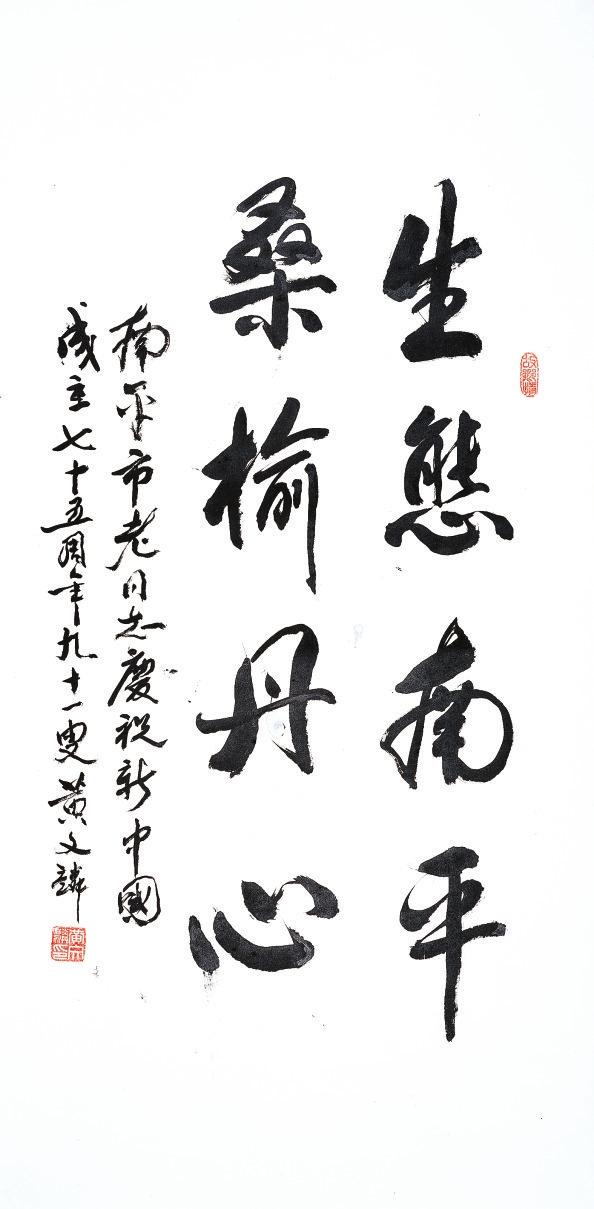 生態南平
桑榆丹心
南平市老同志慶祝新中國
成立七十五周年九十一叟黄文麟